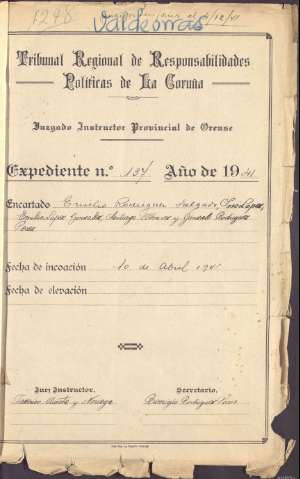 1298
4/12/41
Valdeorras
Tribunal Regional de Responsabilidades
Políticas de La Coruña
Juzgado Instructor Provincial de Orense
Expediente n.º 137 Año de 1941
Encartado Emilio Rodríguez Salgado, José López,
Emilio López González, Santiago y Gonzalo Rodríguez
Fecha de incoación 10 de Abril 1941
Fecha de elevación
Juez Instructor. Secretario.
y Rodríguez